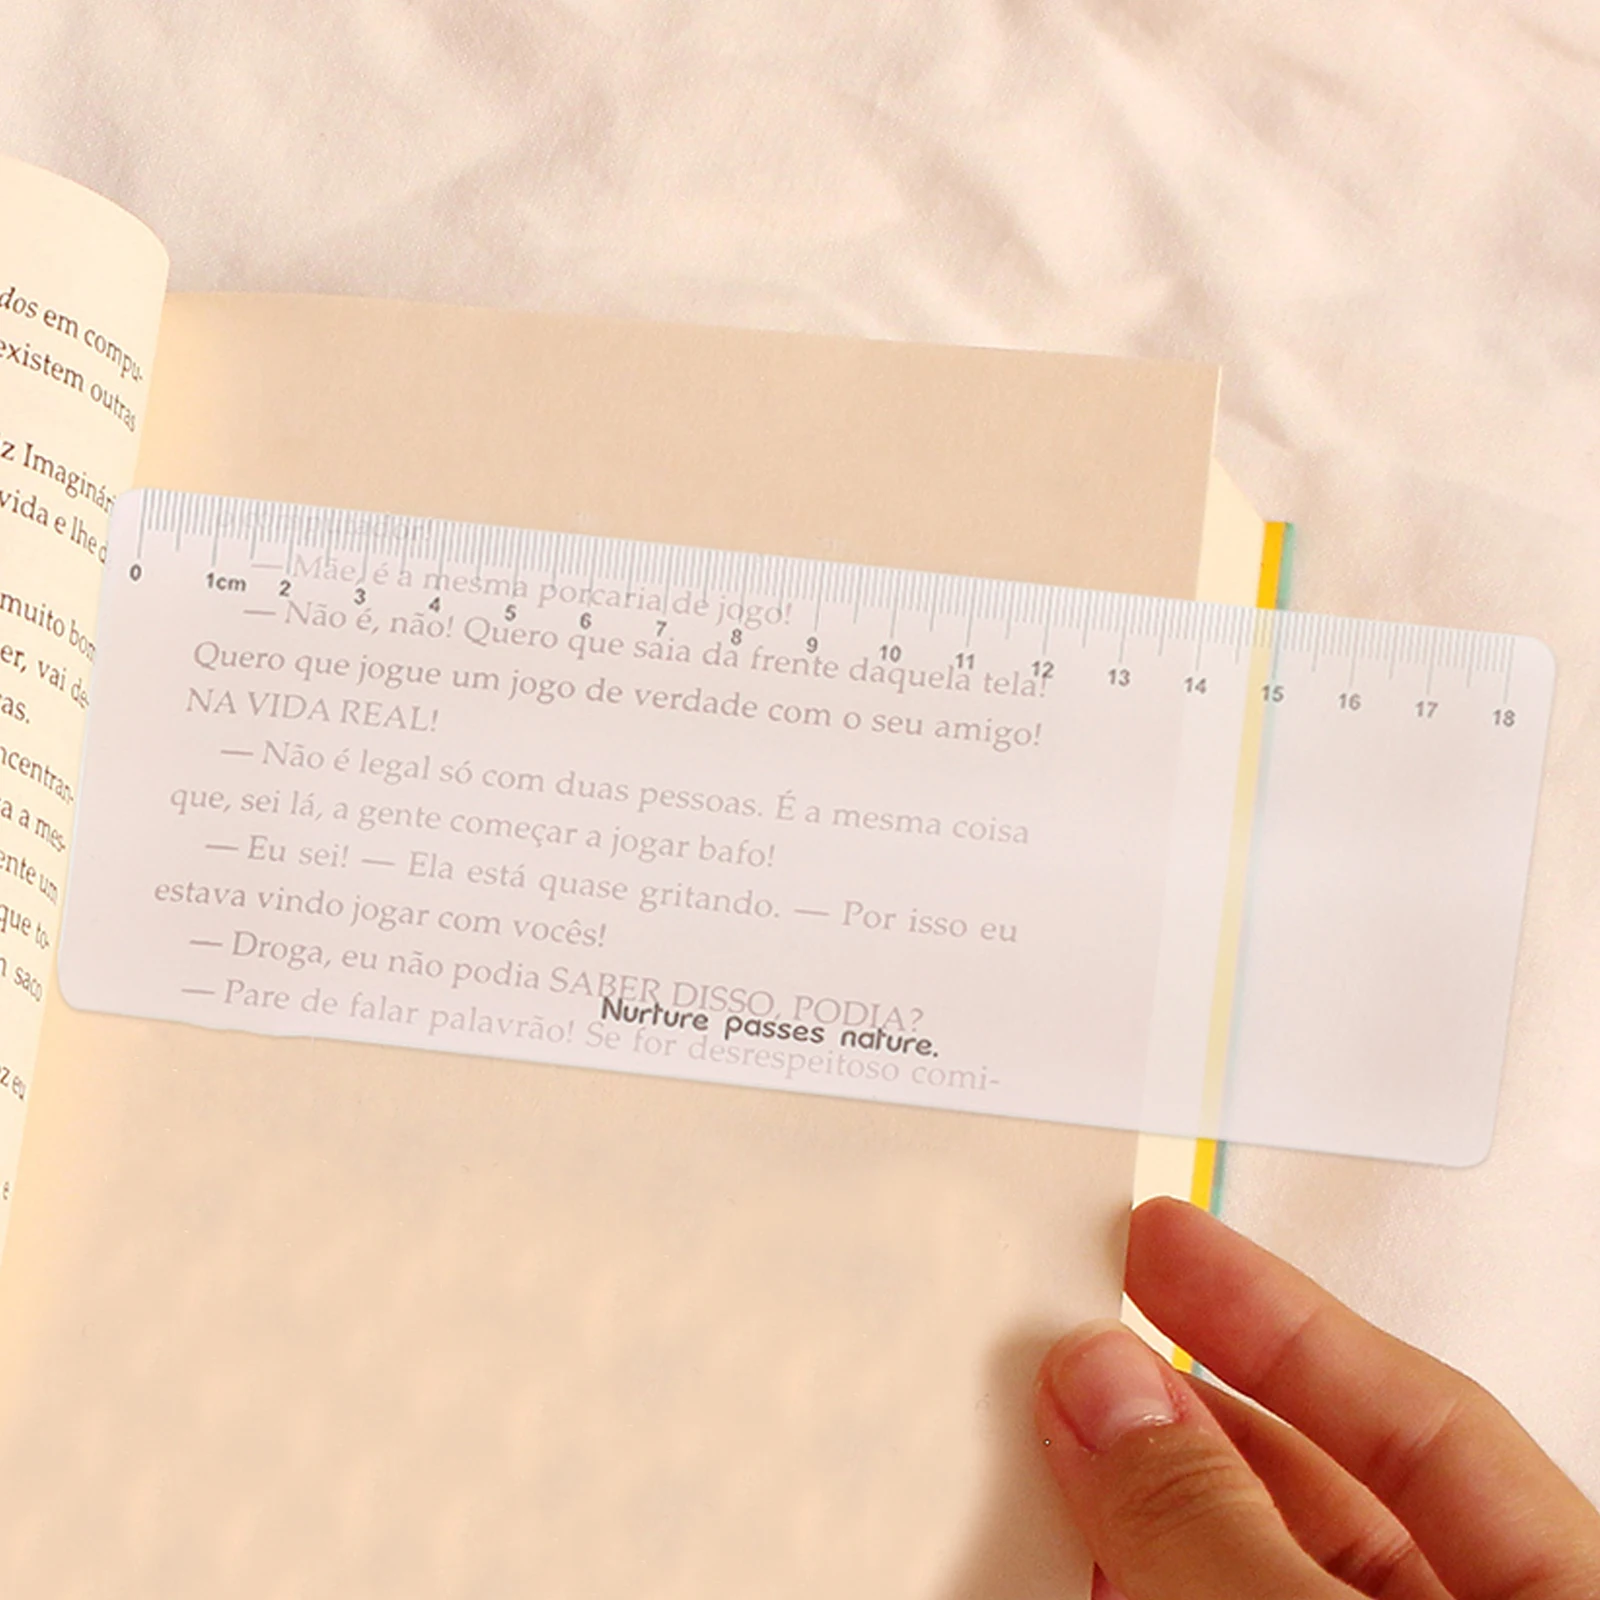 dos em compu-
existem outras
z Imaginári
vida e lhe d
muito bom
er, vai de-
as.
ncentran-
a a mes-
ente um
que to-
n saco
z eu
e
0 1cm 2 3 4 5 6 7 8 9 10 11 12 13 14 15 16 17 18
o computador!
— Mãe, é a mesma porcaria de jogo!
— Não é, não! Quero que saia da frente daquela tela!
Quero que jogue um jogo de verdade com o seu amigo!
NA VIDA REAL!
— Não é legal só com duas pessoas. É a mesma coisa
que, sei lá, a gente começar a jogar bafo!
— Eu sei! — Ela está quase gritando. — Por isso eu
estava vindo jogar com vocês!
— Droga, eu não podia SABER DISSO, PODIA?
— Pare de falar palavrão! Se for desrespeitoso comi-
Nurture passes nature.